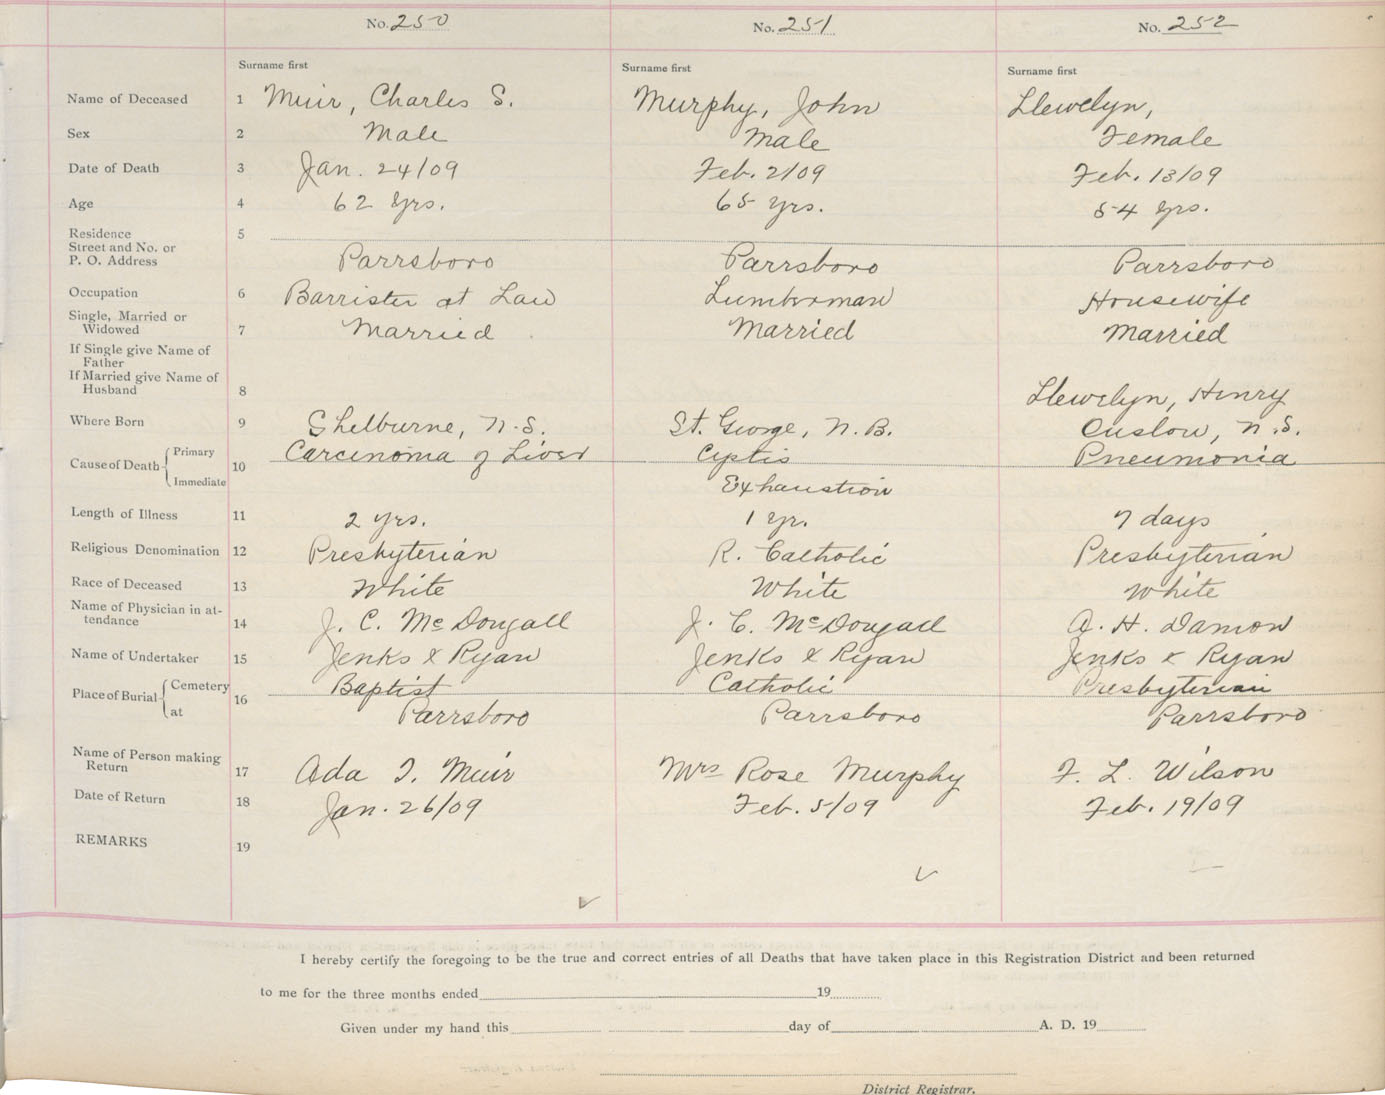 No. 250 No. 251 No. 252
Surname first Surname first Surname first
Name of Deceased 1 Muir, Charles S. Murphy, John Llewelyn,
Sex 2 Male Male Female
Date of Death 3 Jan. 24/09 Feb. 2/09 Feb. 13/09
Age 4 62 Yrs. 65 Yrs. 54 Yrs.
Residence 5
Street and No. or
P. O. Address Parrsboro Parrsboro Parrsboro
Occupation 6 Barrister at Law Lumberman Housewife
Single, Married or
Widowed 7 Married Married Married
If Single give Name of
Father
If Married give Name of
Husband 8 Llewelyn, Henry
Where Born 9 Shelburne, N.S. St. George, N.B. Onslow, N.S.
Cause of Death Primary Carcinoma of Liver Cyptis Pneumonia
10
Immediate Exhaustion
Length of Illness 11 2 yrs. 1 yr. 7 days
Religious Denomination 12 Presbyterian R. Catholic Presbyterian
Race of Deceased 13 White White White
Name of Physician in at-
tendance 14 J. C. McDougall J. C. McDougall A. H. Damon
Name of Undertaker 15 Jenks & Ryan Jenks & Ryan Jenks & Ryan
Place of Burial Cemetery Baptist Catholic Presbyterian
16
at Parrsboro Parrsboro Parrsboro
Name of Person making
Return 17 Ada T. Muir Mrs Rose Murphy F. L. Wilson
Date of Return 18 Jan. 26/09 Feb. 5/09 Feb. 19/09
REMARKS 19
I hereby certify the foregoing to be the true and correct entries of all Deaths that have taken place in this Registration District and been returned
to me for the three months ended 19
Given under my hand this day of A. D. 19
District Registrar.